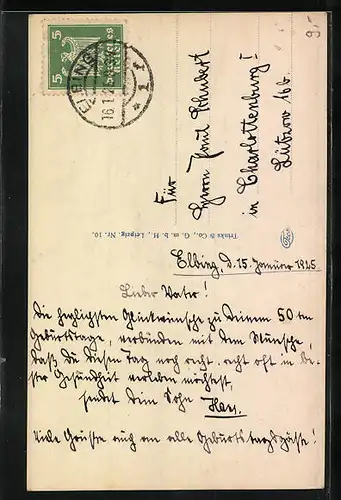 9,-
5 5
DEUTSCHES REICH
ELBING
16.1.2
* 1 1
Für
Herrn Paul Schubert
in Charlottenburg!
Lützow 16 b.
Trinks & Co., G. m. b. H., Leipzig, Nr. 10.
Elbing, d. 15. Januar 1925
Lieber Vater!
Die herzlichsten Glückwünsche zu Deinem 50 ten
Geburtstage, verbunden mit dem Wunsche,
daß Du diesen Tag noch recht, recht oft in be-
ster Gesundheit verleben möchtest,
sendet Dein Sohn
Viele Grüße auch an alle Geburtstagsgäste!